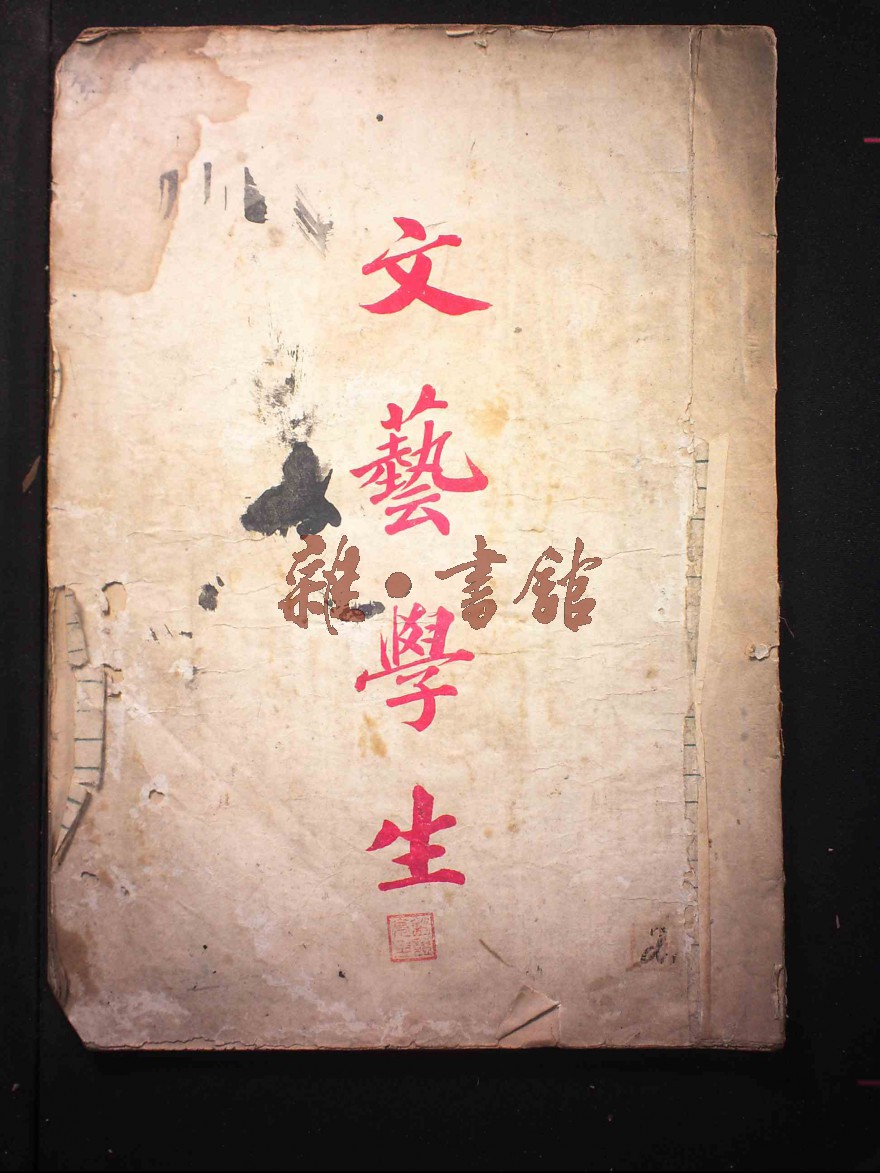 文藝學生
雜·書館